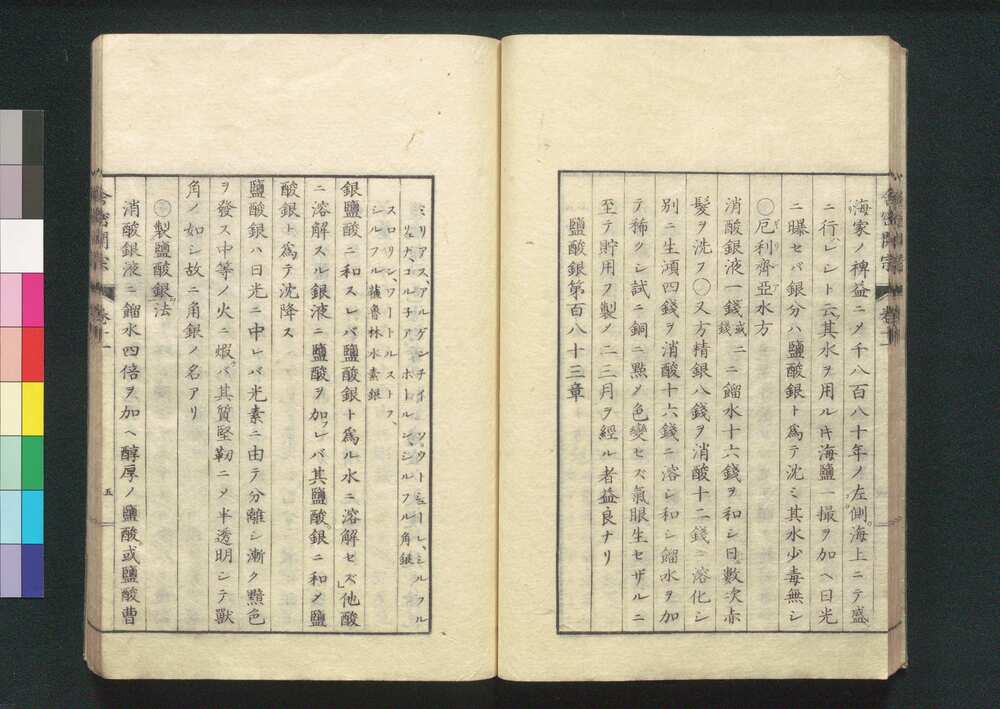 海家ノ裨益ニメ千八百八十年ノ左側海上ニテ盛
ニ行レシト云其水ヲ用ルキ海鹽一撮ヲ加ヘ日光
ニ曝セバ銀分ハ鹽酸銀ト爲テ沈ミ其水少毒無シ
〇厄利齊亞水方
消酸銀液一錢或二錢ニ餾水十六錢ヲ和シ日數次赤
髮ヲ洗フ〇又方精銀八錢ヲ消酸十二錢ニ溶化シ
別ニ生澒四錢ヲ消酸十六錢ニ溶シ和シ餾水ヲ加
テ稀ノシ試ニ銅ニ點ノ色變セズ氣眼生セザルニ
至テ貯用フ製ノ二三月ヲ經ル者益良ナリ
鹽酸銀第百八十三章
ミリアス、アルゲンチイ ソウトシュール、シルフル
リュナ、コルチア、ホールン、シルフル角銀
スロリン、ワートルストフ、
シルフル格魯林水素銀
銀鹽酸ニ和スレバ鹽酸銀ト爲ル水ニ溶解セズ他酸
ニ溶解スル銀液ニ鹽酸ヲ加フレバ其鹽酸銀ニ和メ鹽
酸銀ト爲テ沈降ス
鹽酸銀ハ日光ニ中レバ光素ニ由テ分離シ漸ク黯色
ヲ發ス中等ノ火ニ煆バ其質堅靭ニメ半透明シテ獸
角ノ如シ故ニ角銀ノ名アリ
〇製鹽酸銀法
消酸銀液ニ餾水四倍ヲ加ヘ醇厚ノ鹽酸或鹽酸曹
舎密開宗 卷十一
五